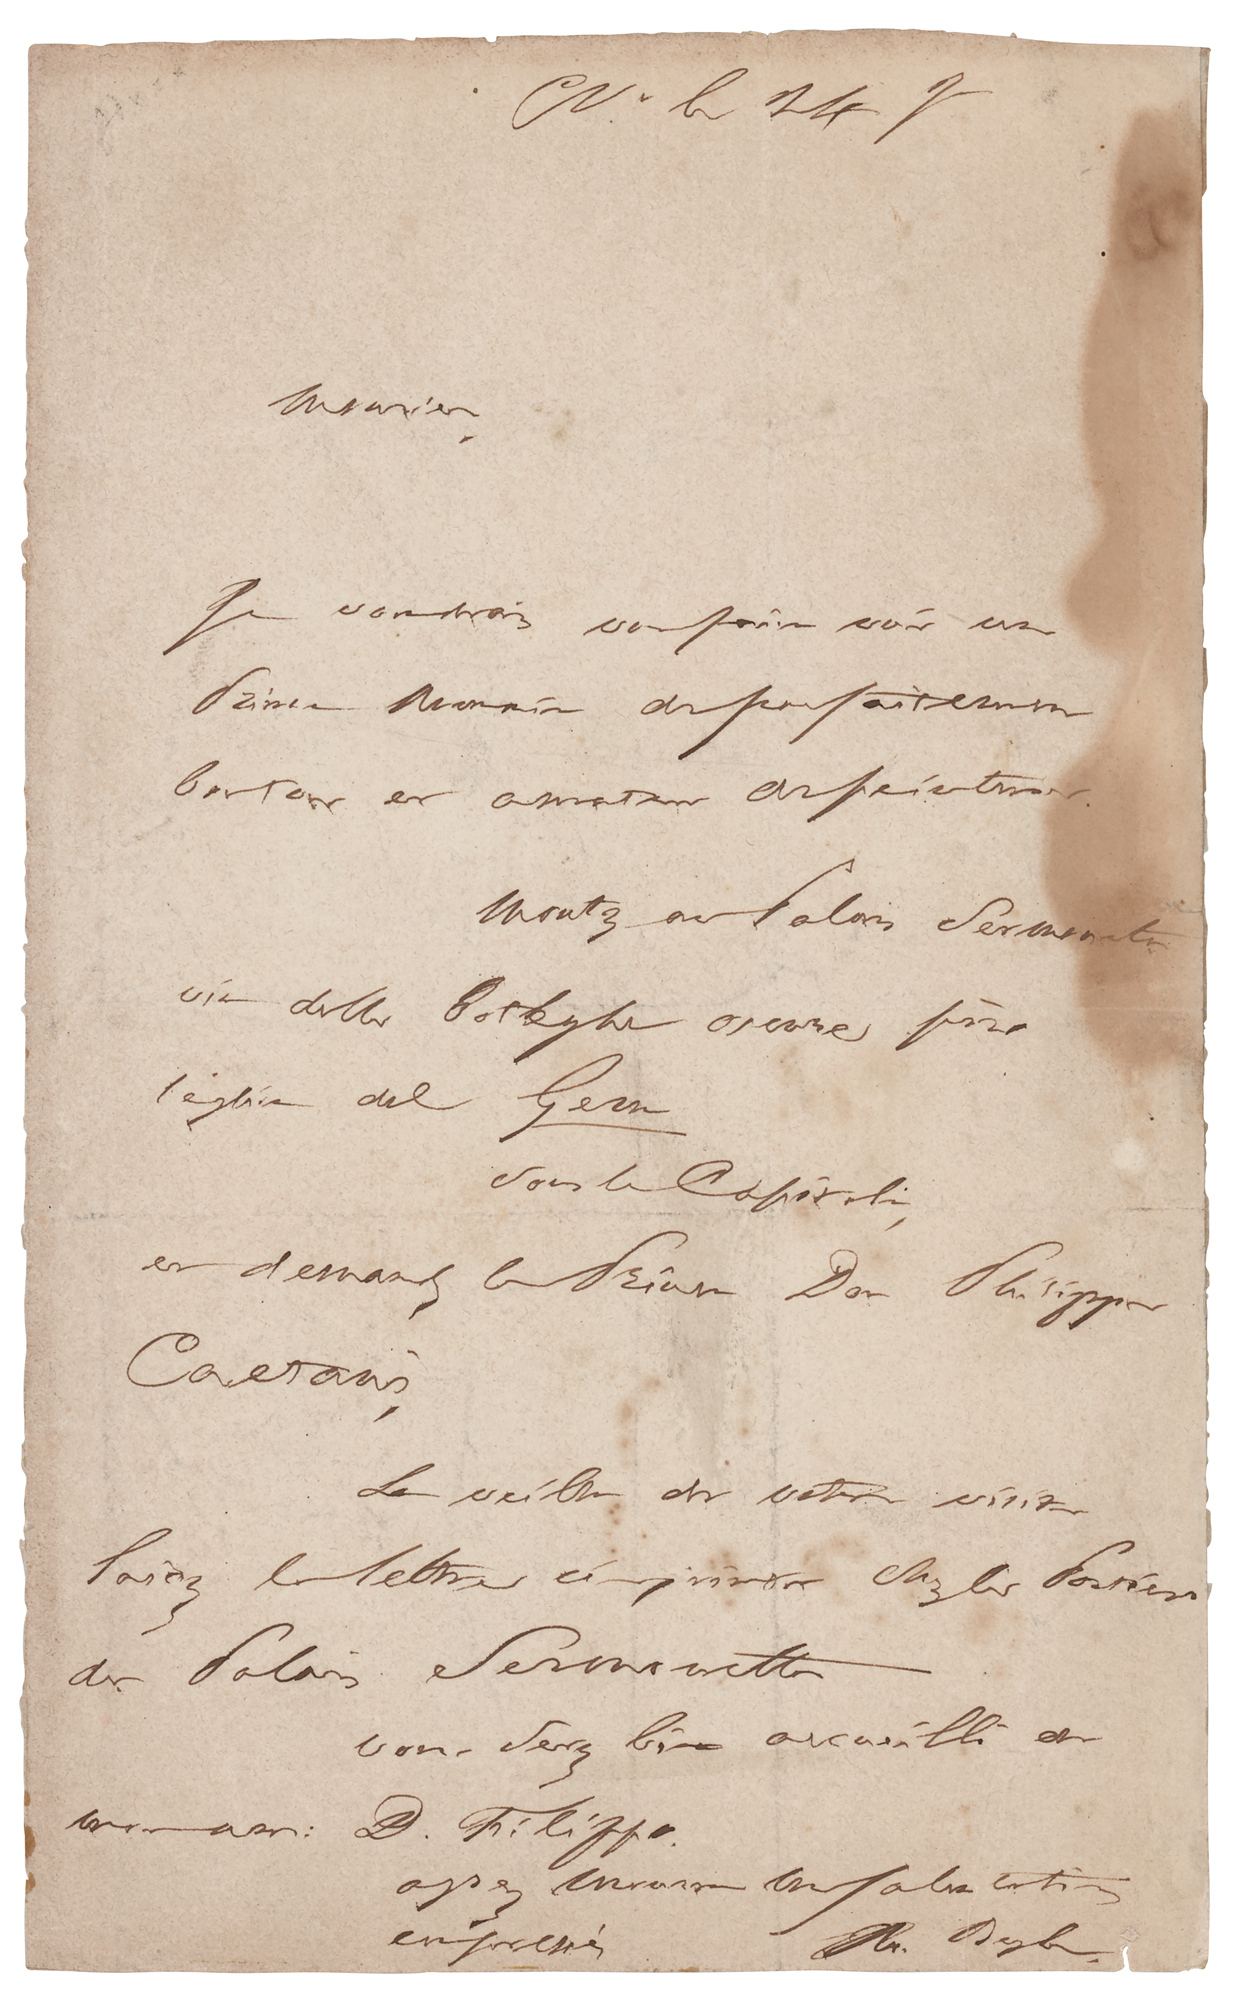 CV. le 24 J
Monsieur,
Je voudrais vous faire voir un
Prince Romain de parfaitement
bon ton et amateur de peinture.
Montez au Palais Sermoneta
via delle Botteghe oscure près
l'église del Gesu
sous le Capitole,
et demandez le Prince Don Philippe
Caetani,
La veille de votre visite
laissez la lettre ci-jointe chez le Portier
du Palais Sermonetta
vous serez bien accueilli de
mon ami: D. Filippo.
agréez Monsieur mes salutations
empressées H. Beyle.